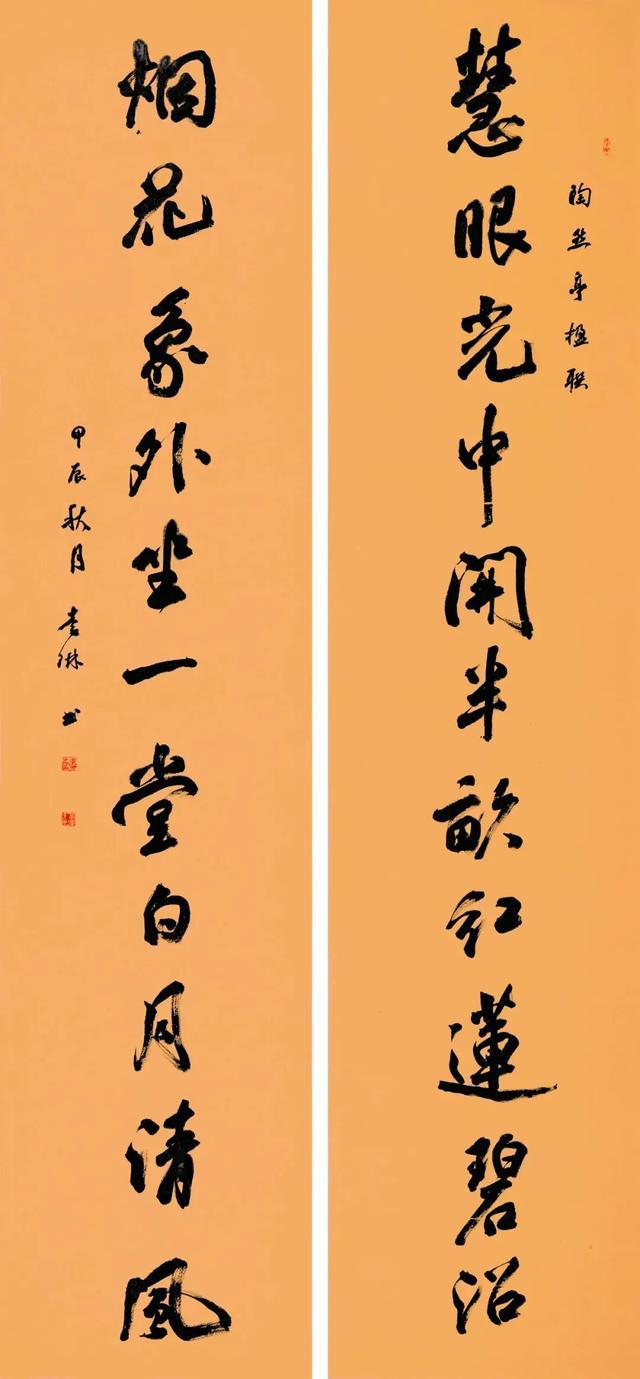 陶然亭楹联
慧眼光中開半畝紅蓮碧沼
烟花象外坐一堂白月清風
甲辰秋月 袁琳 书